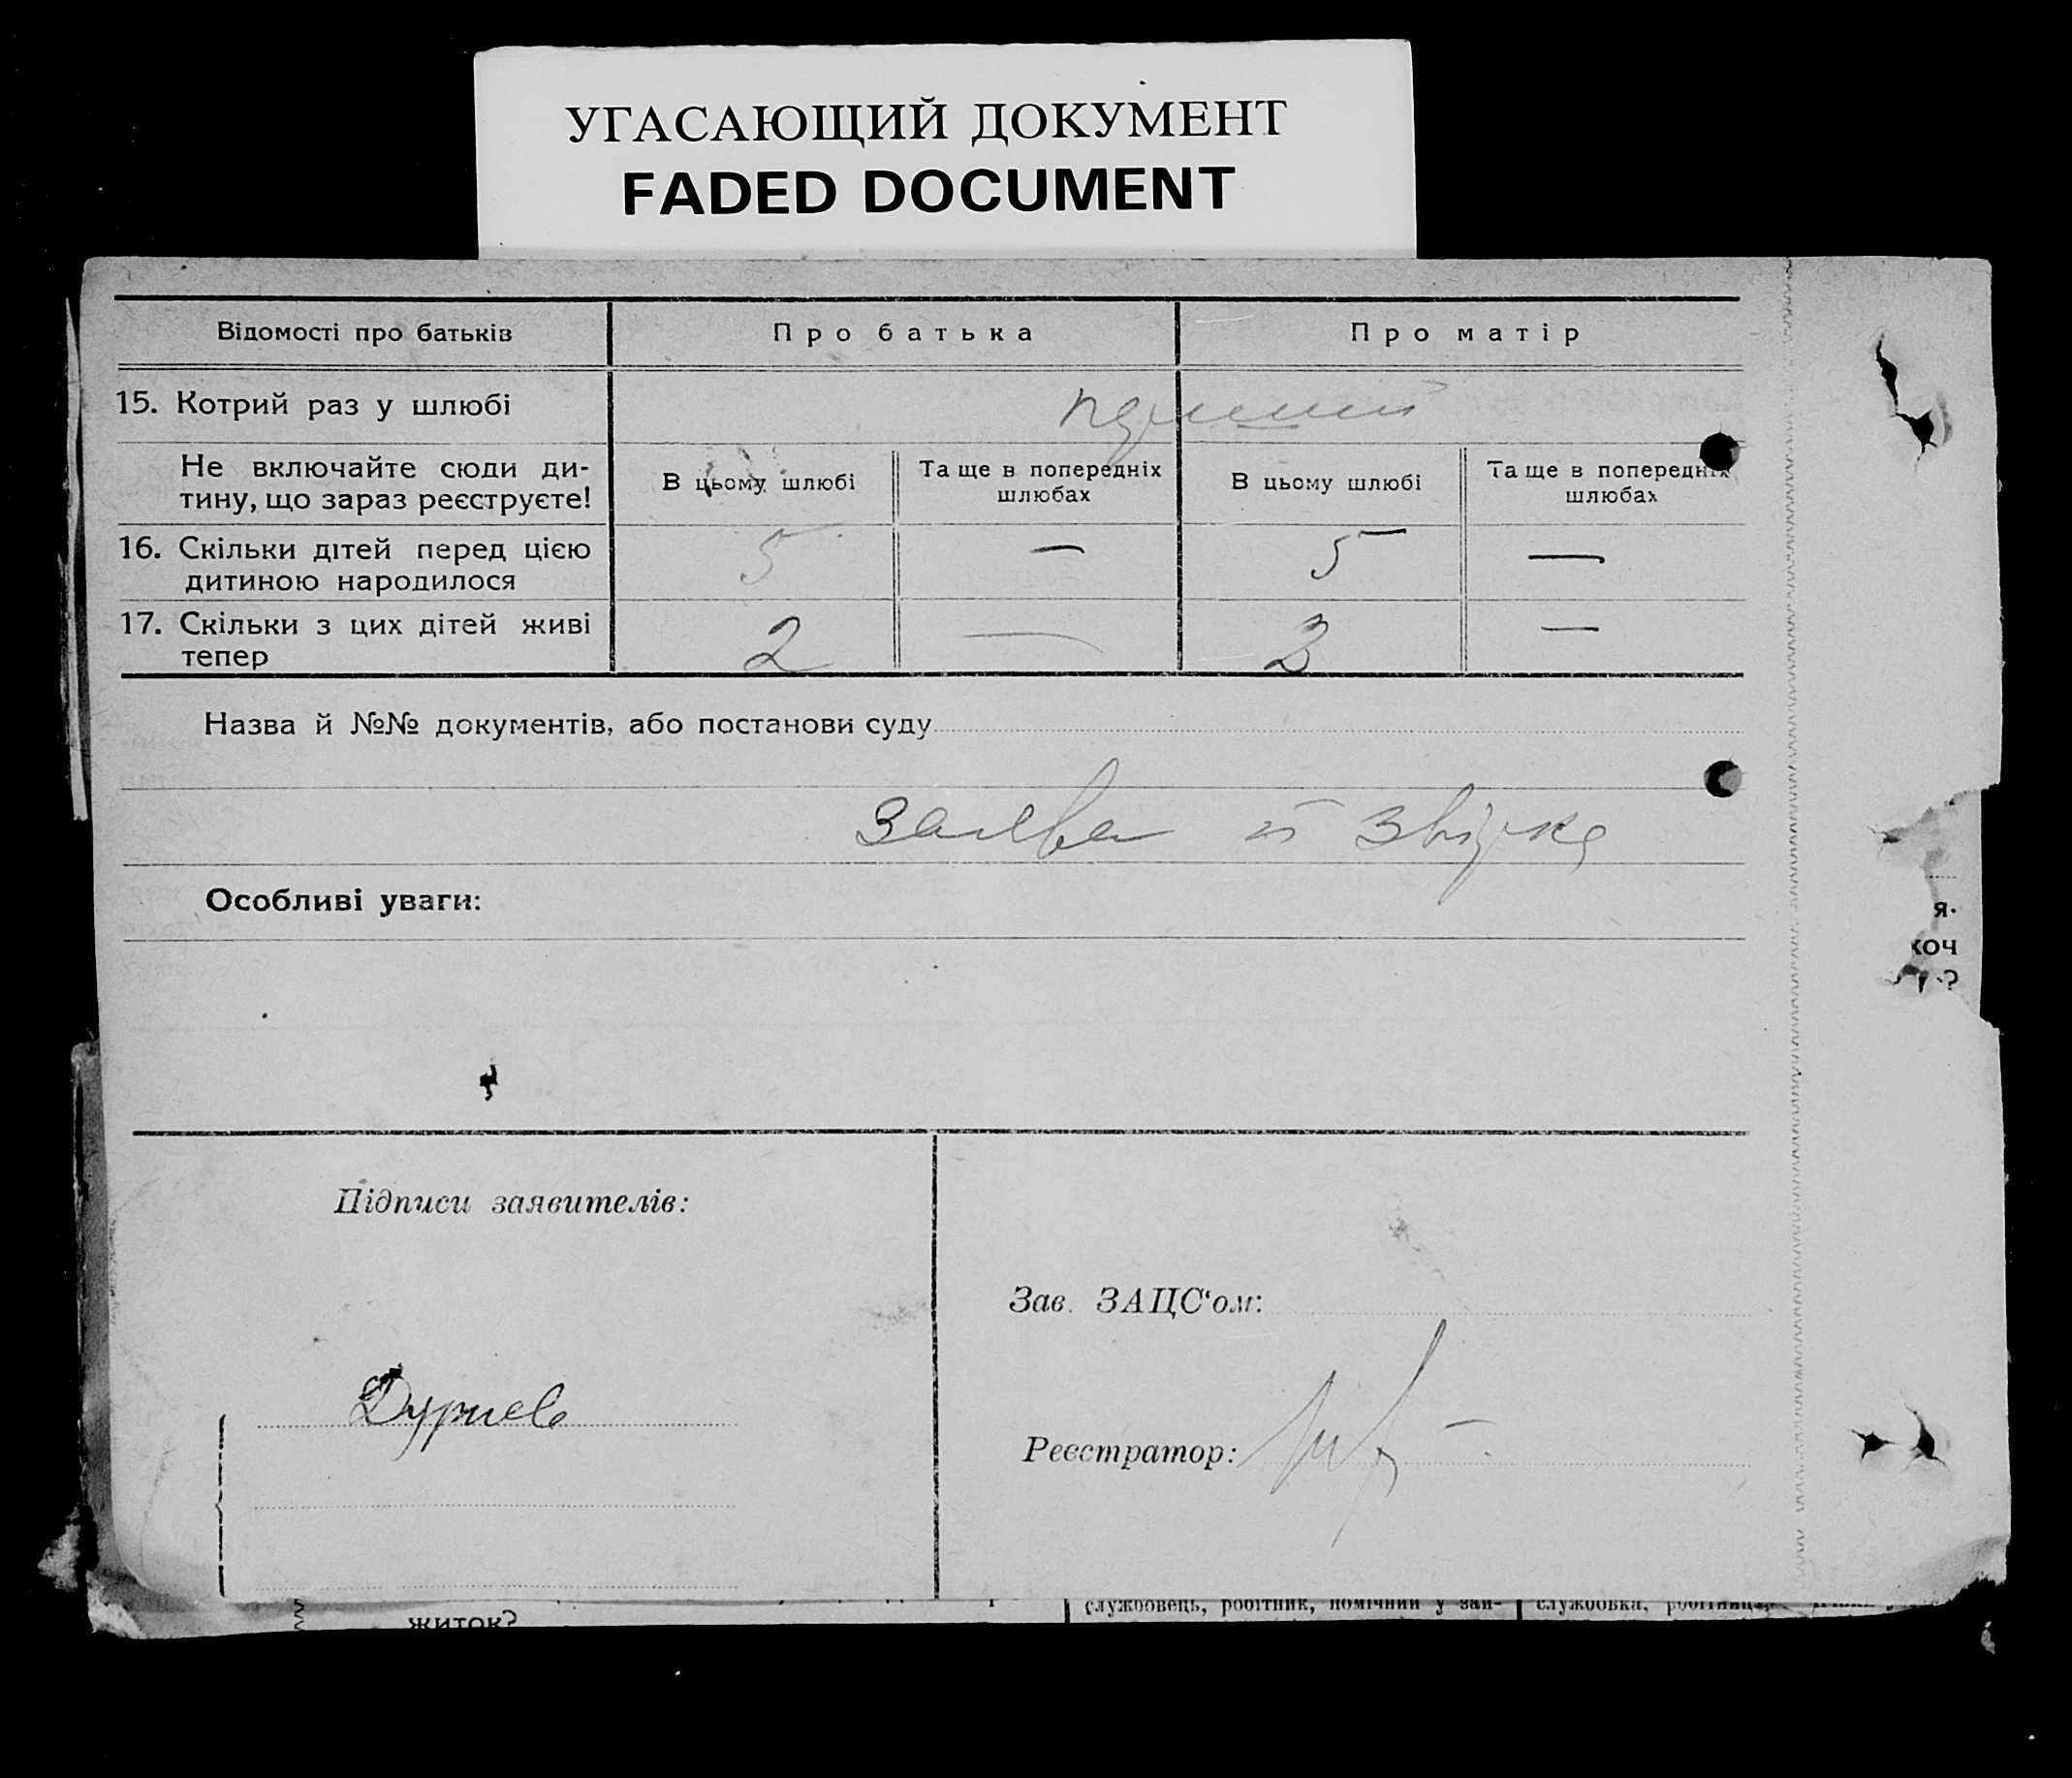 УГАСАЮЩИЙ ДОКУМЕНТ
FADED DOCUMENT
Відомості про батьків
Про батька
Про матір
15. Котрий раз у шлюбі
Не включайте сюди ди-
тину, що зараз реєструєте!
В цьому шлюбі
Та ще в попередніх
шлюбах
В цьому шлюбі
Та ще в попередніх
шлюбах
16. Скільки дітей перед цією
дитиною народилося
5
—
5
—
17. Скільки з цих дітей живі
тепер
2
—
2
—
Назва й №№ документів, або постанови суду
заява й
Особливі уваги:
я.
хоч
?
Підписи заявителів:
Зав. ЗАЦС‘ом:
Реєстратор:
житок?
службовець, робітник, помічний у зан-
службовка, робітниця,